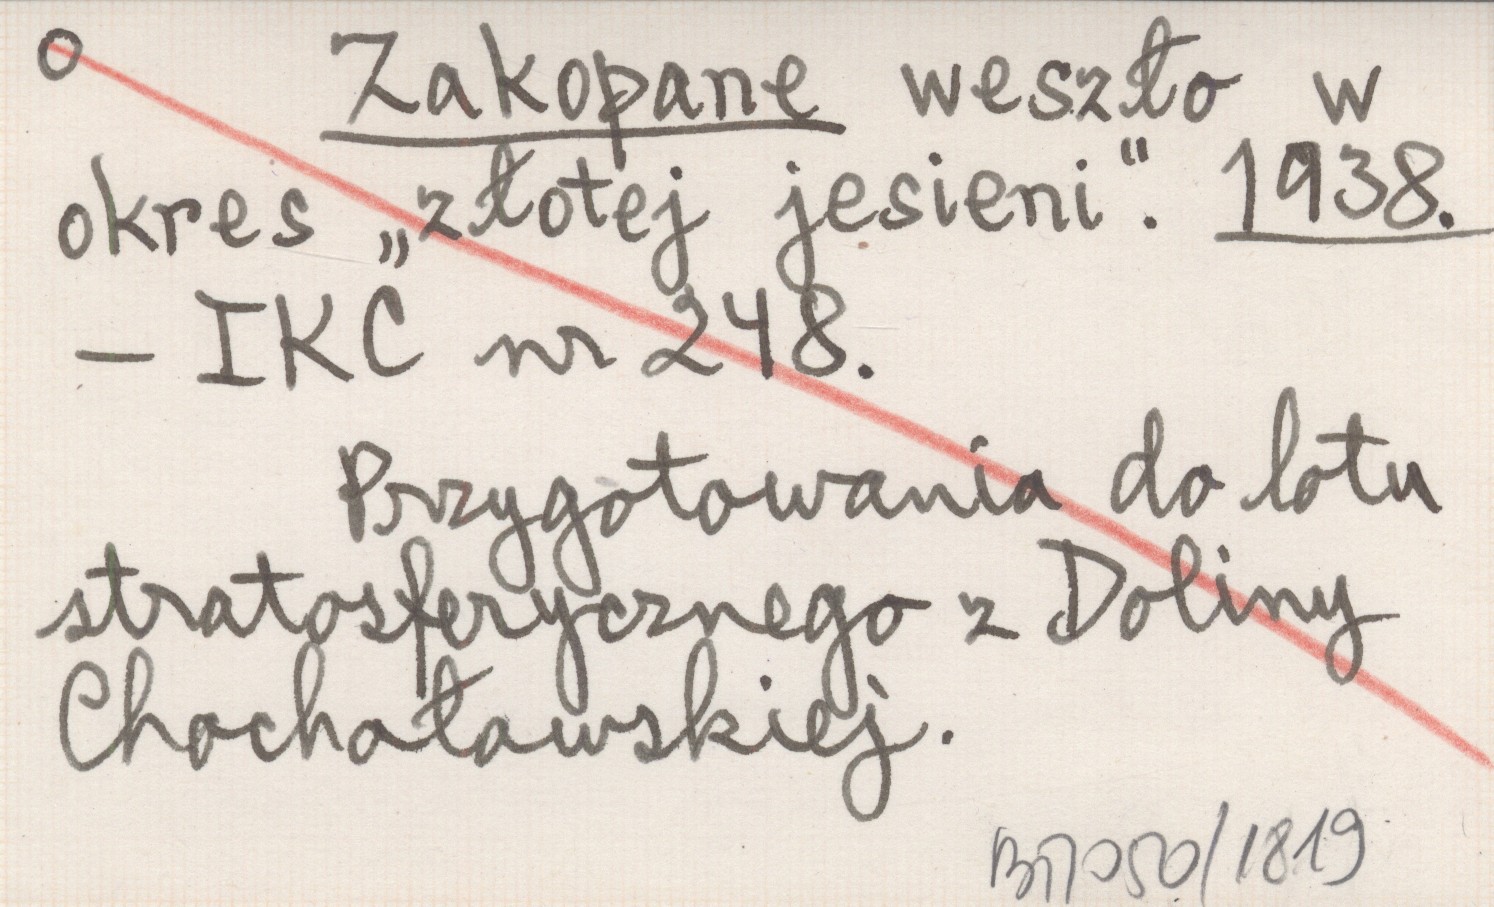 Zakopane weszło w
okres „złotej jesieni". 1938.
– IKC nr 248.
Przygotowania do lotu
stratosferycznego z Doliny
Chochołowskiej.
/1819